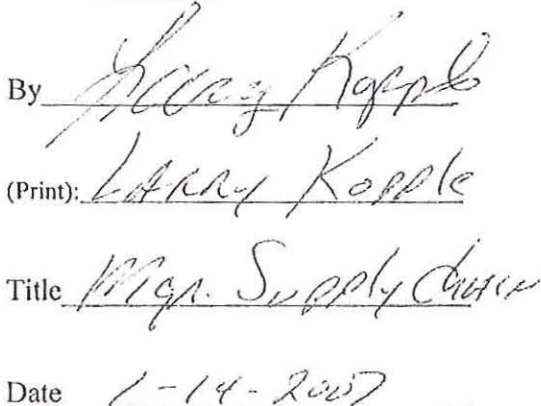 By Larry Kopple
(Print): LARRY Kopple
Title Mgr. Supply Chain
Date 1-14-2007